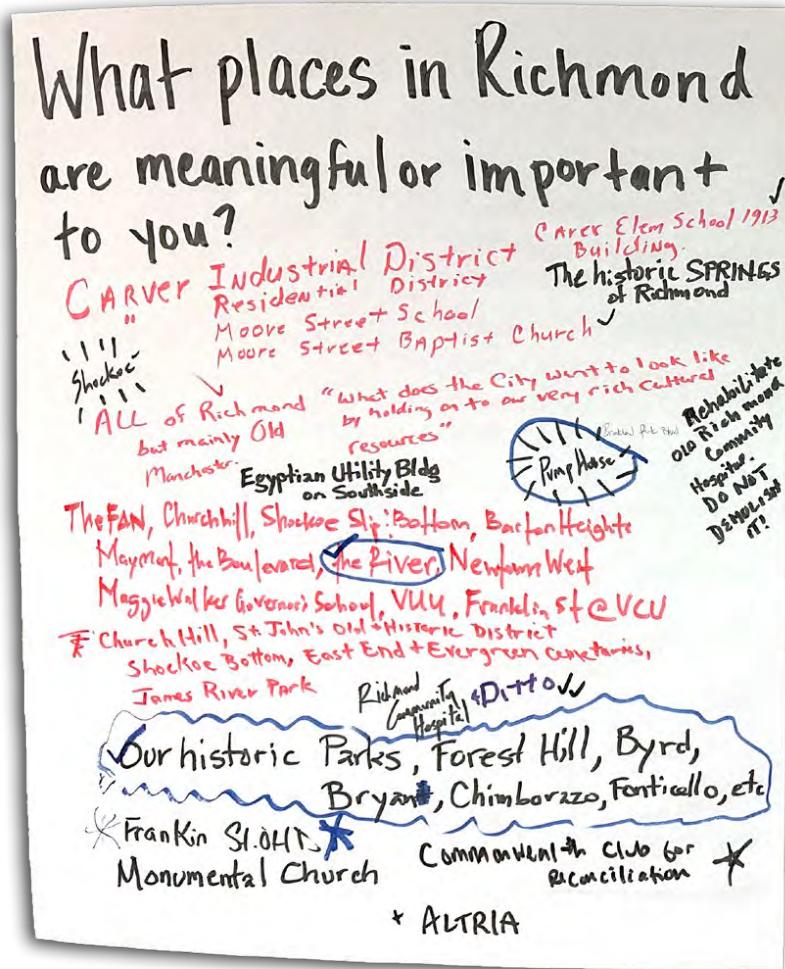 What places in Richmond
are meaningful or important
to you?
Carver Elem School 1913
Building.
CARVER Industrial District
" Residential District
Moore Street School
Moore Street Baptist Church
The historic SPRINGS
of Richmond
Shockoe
ALL of Richmond
but mainly Old
Manchester.
"What does the City want to look like
by holding on to our very rich cultural
resources"
Pump House
Rehabilitate
Old Richmond
Community
Hospital.
DO NOT
DEMOLISH
IT!
Egyptian Utility Bldg
on Southside
The FAN, Churchhill, Shockoe Slip: Bottom, Barton Heights
Maymont, the Boulevard, the River, Newtown West
Maggie Walker Governor's School, VUU, Franklin St @ VCU
Church Hill, St. John's Old + Historic District
Shockoe Bottom, East End + Evergreen cemetaries,
James River Park
Richmond
Community
Hospital
Ditto
Our historic Parks, Forest Hill, Byrd,
Bryan, Chimborazo, Fonticello, etc
Frankin St.
Monumental Church
Commonwealth Club for
reconciliation
* ALTRIA